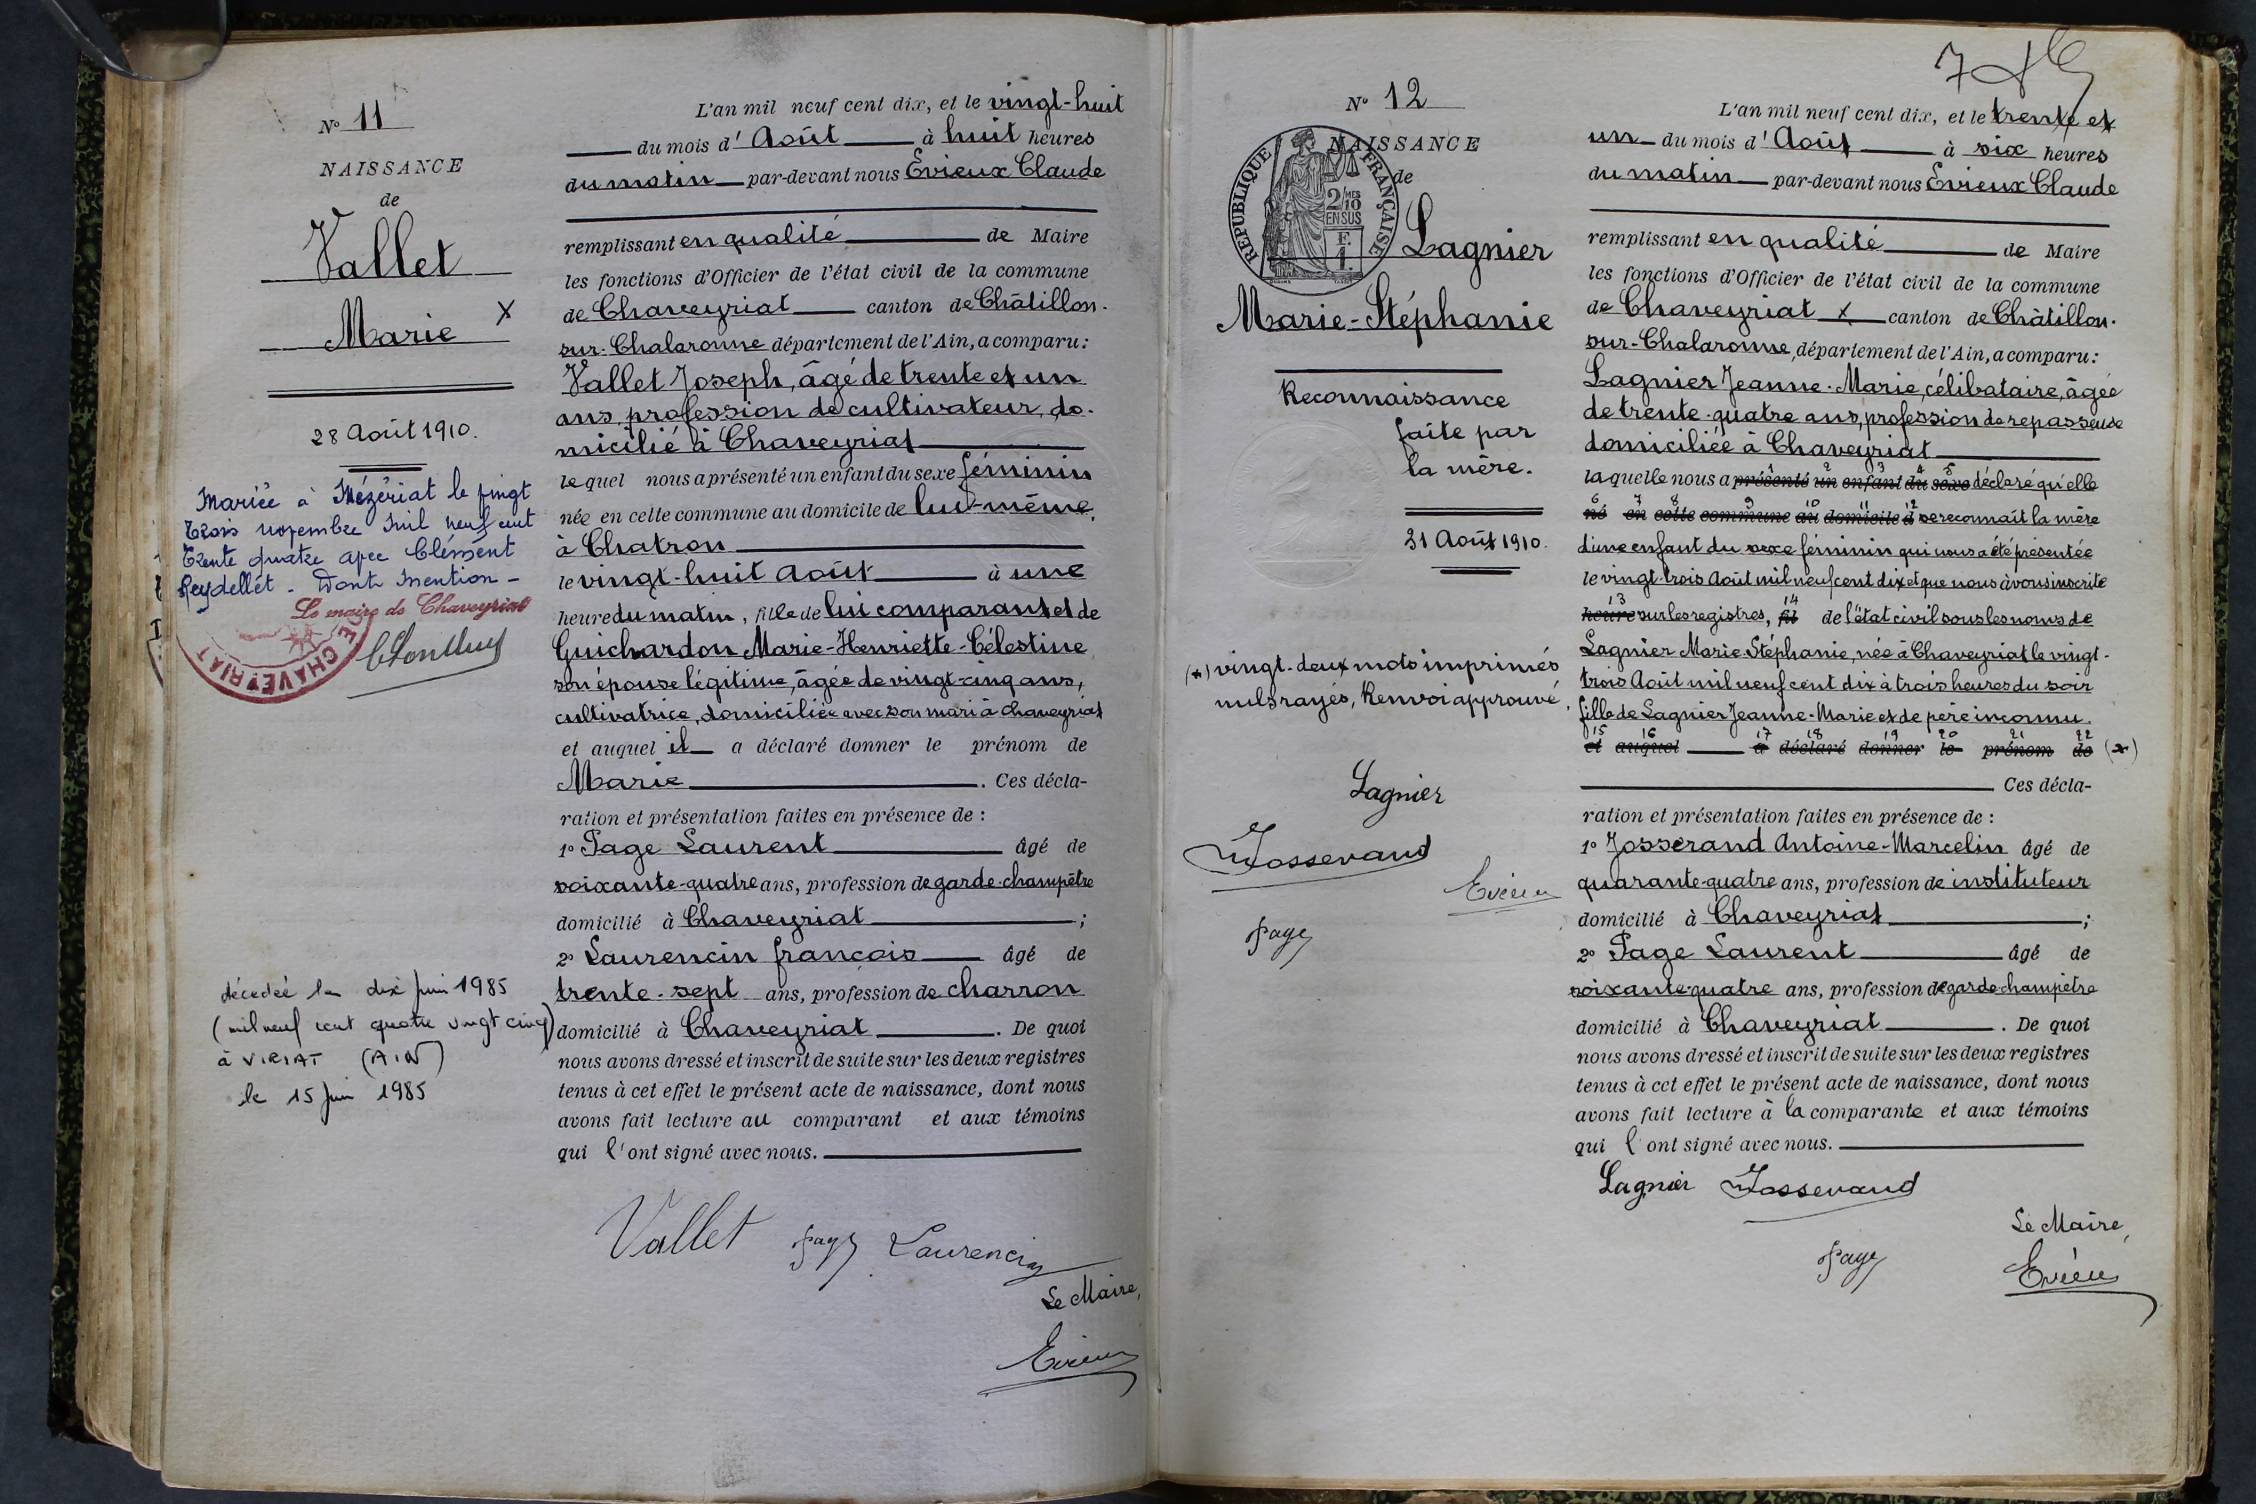 N° 11
NAISSANCE
de
Vallet
Marie X
28 Août 1910.
Mariée à Mézériat le vingt
trois novembre mil neuf cent
trente quatre avec Clément
Reydellet. Dont mention -
Le maire de Chaveyriat
CHAVEYRIAT
décédée le dix juin 1985
(mil neuf cent quatre vingt cinq)
à VIRIAT (AIN)
le 15 juin 1985
L'an mil neuf cent dix, et le vingt-huit
du mois d'Août à huit heures
du matin par-devant nous Evieux Claude
remplissant en qualité de Maire
les fonctions d'Officier de l'état civil de la commune
de Chaveyriat canton de Châtillon-
sur-Chalaronne département de l'Ain, a comparu:
Vallet Joseph, âgé de trente et un
ans, profession de cultivateur, do-
micilié à Chaveyriat
lequel nous a présenté un enfant du sexe féminin
née en cette commune au domicile de lui-même,
à Chatron
le vingt-huit Août à une
heure du matin, fille de lui comparant et de
Guichardon Marie-Henriette-Célestine
son épouse légitime, âgée de vingt-cinq ans,
cultivatrice, domiciliée avec son mari à Chaveyriat
et auquel il a déclaré donner le prénom de
Marie. Ces décla-
ration et présentation faites en présence de :
1° Page Laurent âgé de
soixante-quatre ans, profession de garde-champêtre
domicilié à Chaveyriat ;
2° Laurencin françois âgé de
trente-sept ans, profession de charron
domicilié à Chaveyriat. De quoi
nous avons dressé et inscrit de suite sur les deux registres
tenus à cet effet le présent acte de naissance, dont nous
avons fait lecture au comparant et aux témoins
qui l'ont signé avec nous.
Vallet page Laurencin
Le Maire,
Evieux
7
N° 12
NAISSANCE
de
REPUBLIQUE FRANÇAISE
2/10 MES
EN SUS
F.
1.
Lagnier
Marie-Stéphanie
Reconnaissance
faite par
la mère.
31 Août 1910.
(x) vingt-deux mots imprimés
nuls rayés, Renvoi approuvé.
Lagnier
Josserand
Evieux
page
L'an mil neuf cent dix, et le trente et
un du mois d'Août à six heures
du matin par-devant nous Evieux Claude
remplissant en qualité de Maire
les fonctions d'Officier de l'état civil de la commune
de Chaveyriat canton de Châtillon-
sur-Chalaronne, département de l'Ain, a comparu:
Lagnier Jeanne-Marie, célibataire, âgée
de trente-quatre ans, profession de repasseuse
domiciliée à Chaveyriat
1 2 3 4 5
laquelle nous a présenté un enfant du sexe déclaré qu'elle
6 7 8 9 10 11 12
né en cette commune au domicile d se reconnaît la mère
d'une enfant du sexe féminin qui nous a été présentée
le vingt-trois Août mil neuf cent dix et que nous avons inscrite
13 14
heure sur les registres, fil de l'état civil sous les noms de
Lagnier Marie-Stéphanie, née à Chaveyriat le vingt-
trois Août mil neuf cent dix à trois heures du soir
fille de Lagnier Jeanne-Marie et de père inconnu.
15 16 17 18 19 20 21 22
et auquel a déclaré donner le prénom de (x)
Ces décla-
ration et présentation faites en présence de :
1° Josserand Antoine-Marcelin âgé de
quarante-quatre ans, profession de instituteur
domicilié à Chaveyriat ;
2° Page Laurent âgé de
soixante-quatre ans, profession de garde-champêtre
domicilié à Chaveyriat. De quoi
nous avons dressé et inscrit de suite sur les deux registres
tenus à cet effet le présent acte de naissance, dont nous
avons fait lecture à la comparante et aux témoins
qui l'ont signé avec nous.
Lagnier Josserand
Le Maire,
page
Evieux